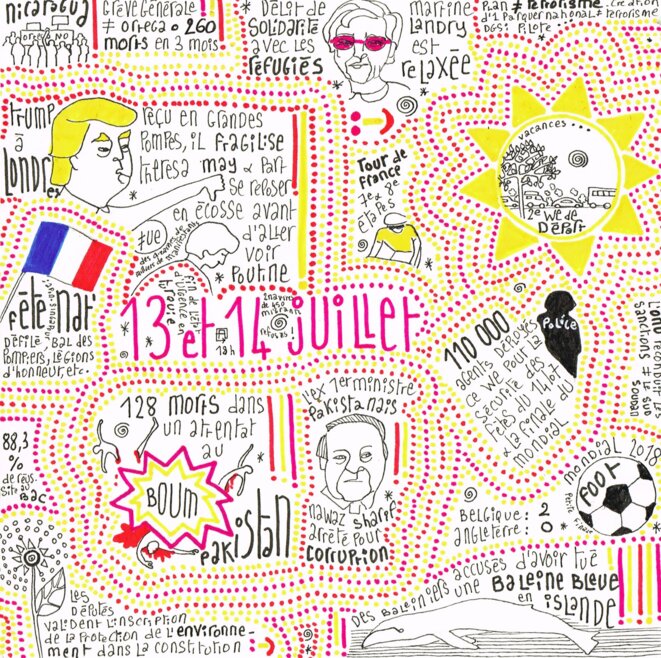 nicaragua
ORTEGA NO
Grève Générale
≠ Ortega ○ 260
morts en 3 mois
Délit de
solidarité
avec les
réfugiés
Martine
Landry
est
relaxée
Plan ≠ terrorisme. Création
d'1 Parquet national ≠ terrorisme
DGSI Pilote
Trump
à
Londres
reçu en grandes
pompes, il fragilise
Theresa May & part
se reposer
en Écosse avant
d'aller
voir
Poutine
tué
Tour de
France
7e & 8e
étapes
vacances...
2e WE de
Départ
Fête nat'
Défilé, Bal des
Pompiers, légions
d'honneur, etc.
13 et 14 juillet
18h
110 000
agents déployés
ce WE pour la
sécurité des
fêtes du 14 juil
& la finale du
mondial
Police
L'ONU
sanctions ≠ le sud
Soudan
128 morts dans
un attentat
au
BOUM
Pakistan
L'ex 1er ministre
pakistanais
Nawaz Sharif
arrêté pour
corruption
88,3
%
de réus-
site au
BAC
Mondial 2018
Foot
Petite finale
Belgique : 2
Angleterre : 0
Les
Députés
valident l'inscription
de la protection de l'environne-
ment dans la constitution
Des baleiniers accusés d'avoir tué
une baleine bleue
en Islande